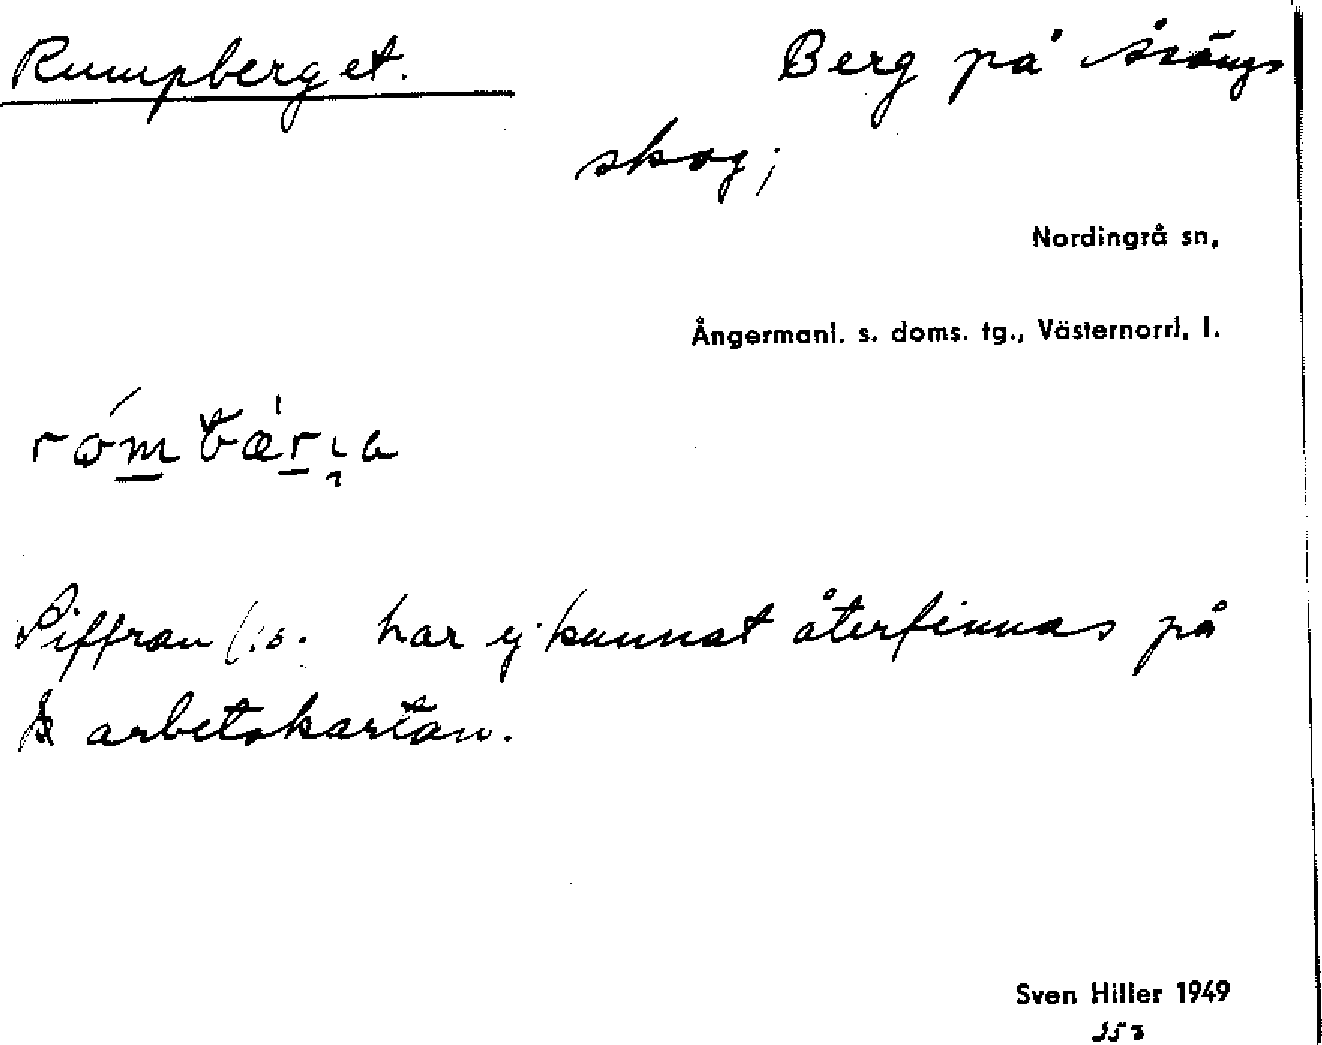 Rumpberget. Berg på
skog;
Nordingrå sn,
Ångermanl. s. doms. tg., Västernorrl. l.
Siffran har ej kunnat återfinnas på
arbetskartan.
Sven Hiller 1949